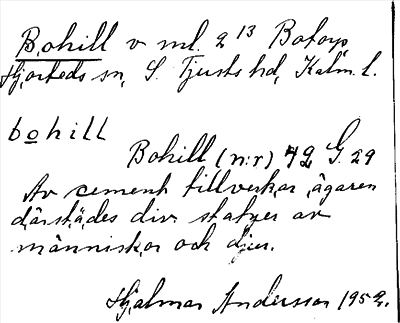 Bohill v ml. 2 13 Botorp,
Hjorteds sn, S. Tjusts hd, Kalm. l.
bohill
Bohill (n:r) 42 G. 29
Av cement tillverkar ägaren
därstädes div. statyer av
människor och djur.
Hjalmar Andersson 1952.